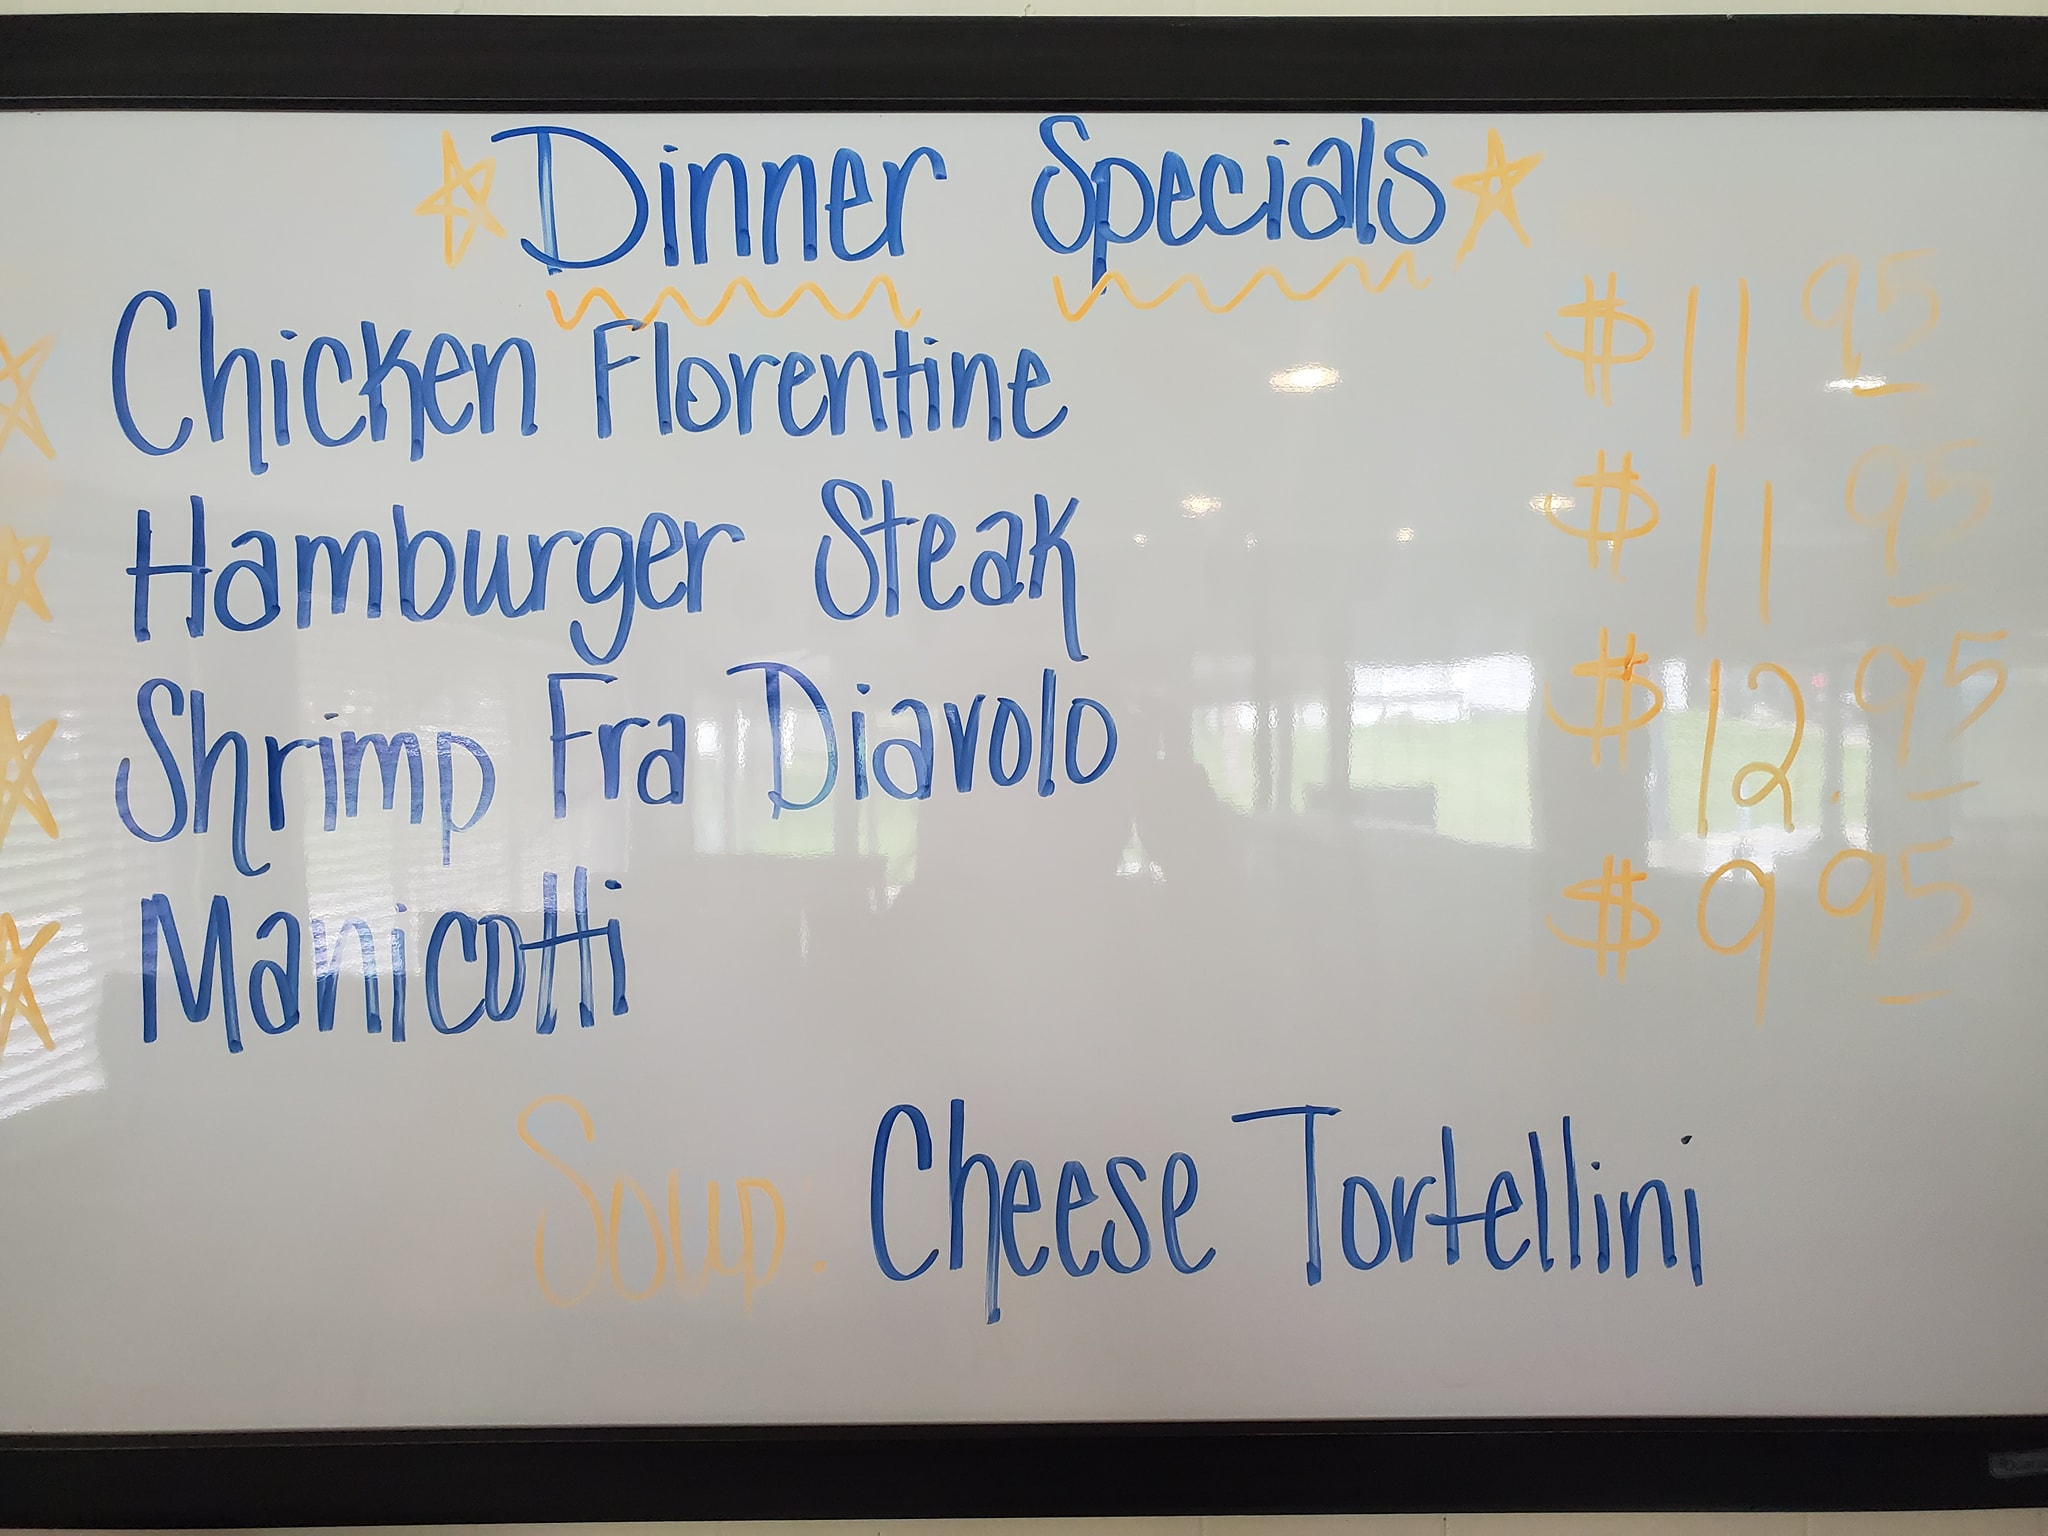 Dinner Specials
Chicken Florentine $11 95
Hamburger Steak $11 95
Shrimp Fra Diavolo $12.95
Manicotti $9 95
Soup: Cheese Tortellini